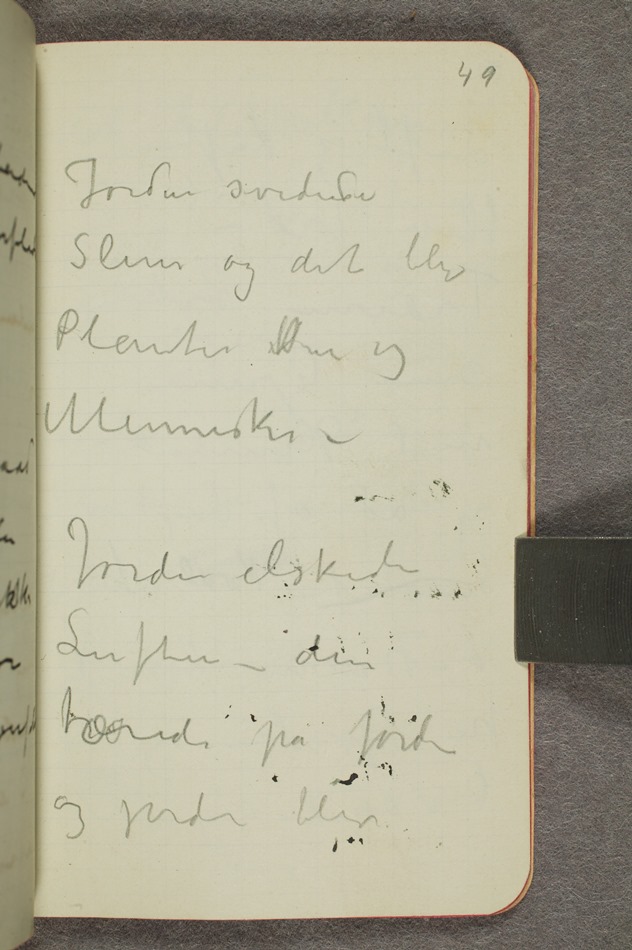 49
Jorden svededе
Slim og det blev
Planter Dyr og
Mennesker –
Jorden elskede
Luften – den
tærede på jorden
og jorden blev